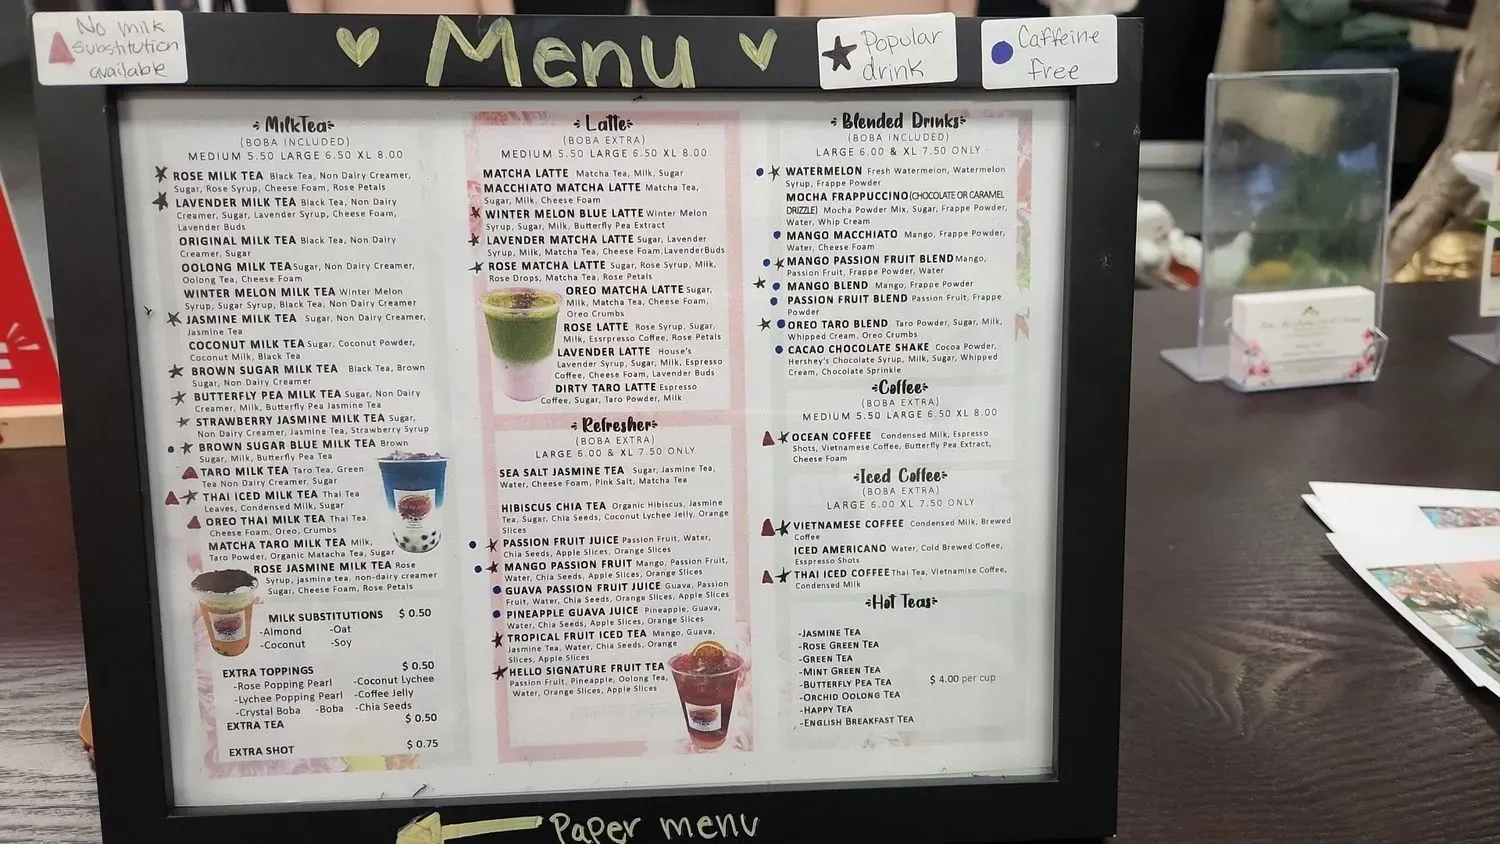 No milk
substitution
available
Menu
Popular
drink
Caffeine
free
MilkTea
(BOBA INCLUDED)
MEDIUM 5.50 LARGE 6.50 XL 8.00
ROSE MILK TEA Black Tea, Non Dairy Creamer,
Sugar, Rose Syrup, Cheese Foam, Rose Petals
LAVENDER MILK TEA Black Tea, Non Dairy
Creamer, Sugar, Lavender Syrup, Cheese Foam,
Lavender Buds
ORIGINAL MILK TEA Black Tea, Non Dairy
Creamer, Sugar
OOLONG MILK TEA Sugar, Non Dairy Creamer,
Oolong Tea, Cheese Foam
WINTER MELON MILK TEA Winter Melon
Syrup, Sugar Syrup, Black Tea, Non Dairy Creamer
JASMINE MILK TEA Sugar, Non Dairy Creamer,
Jasmine Tea
COCONUT MILK TEA Sugar, Coconut Powder,
Coconut Milk, Black Tea
BROWN SUGAR MILK TEA Black Tea, Brown
Sugar, Non Dairy Creamer
BUTTERFLY PEA MILK TEA Sugar, Non Dairy
Creamer, Milk, Butterfly Pea Jasmine Tea
STRAWBERRY JASMINE MILK TEA Sugar,
Non Dairy Creamer, Jasmine Tea, Strawberry Syrup
BROWN SUGAR BLUE MILK TEA Brown
Sugar, Milk, Butterfly Pea Tea
TARO MILK TEA Taro Tea, Green
Tea Non Dairy Creamer, Sugar
THAI ICED MILK TEA Thai Tea
Leaves, Condensed Milk, Sugar
OREO THAI MILK TEA Thai Tea
Cheese Foam, Oreo, Crumbs
MATCHA TARO MILK TEA Milk,
Taro Powder, Organic Matacha Tea, Sugar
ROSE JASMINE MILK TEA Rose
Syrup, jasmine tea, non-dairy creamer
Sugar, Cheese Foam, Rose Petals
MILK SUBSTITUTIONS $ 0.50
-Almond -Oat
-Coconut -Soy
EXTRA TOPPINGS $ 0.50
-Rose Popping Pearl -Coconut Lychee
-Lychee Popping Pearl -Coffee Jelly
-Crystal Boba -Boba -Chia Seeds
EXTRA TEA $ 0.50
EXTRA SHOT $ 0.75
Latte
(BOBA EXTRA)
MEDIUM 5.50 LARGE 6.50 XL 8.00
MATCHA LATTE Matcha Tea, Milk, Sugar
MACCHIATO MATCHA LATTE Matcha Tea,
Sugar, Milk, Cheese Foam
WINTER MELON BLUE LATTE Winter Melon
Syrup, Sugar, Milk, Butterfly Pea Extract
LAVENDER MATCHA LATTE Sugar, Lavender
Syrup, Milk, Matcha Tea, Cheese Foam,LavenderBuds
ROSE MATCHA LATTE Sugar, Rose Syrup, Milk,
Rose Drops, Matcha Tea, Rose Petals
OREO MATCHA LATTE Sugar,
Milk, Matcha Tea, Cheese Foam,
Oreo Crumbs
ROSE LATTE Rose Syrup, Sugar,
Milk, Essrpresso Coffee, Rose Petals
LAVENDER LATTE House's
Lavender Syrup, Sugar, Milk, Espresso
Coffee, Cheese Foam, Lavender Buds
DIRTY TARO LATTE Espresso
Coffee, Sugar, Taro Powder, Milk
Refresher
(BOBA EXTRA)
LARGE 6.00 & XL 7.50 ONLY
SEA SALT JASMINE TEA Sugar, Jasmine Tea,
Water, Cheese Foam, Pink Salt, Matcha Tea
HIBISCUS CHIA TEA Organic Hibiscus, Jasmine
Tea, Sugar, Chia Seeds, Coconut Lychee Jelly, Orange
Slices
PASSION FRUIT JUICE Passion Fruit, Water,
Chia Seeds, Apple Slices, Orange Slices
MANGO PASSION FRUIT Mango, Passion Fruit,
Water, Chia Seeds, Apple Slices, Orange Slices
GUAVA PASSION FRUIT JUICE Guava, Passion
Fruit, Water, Chia Seeds, Orange Slices, Apple Slices
PINEAPPLE GUAVA JUICE Pineapple, Guava,
Water, Chia Seeds, Apple Slices, Orange Slices
TROPICAL FRUIT ICED TEA Mango, Guava,
Jasmine Tea, Water, Chia Seeds, Orange
Slices, Apple Slices
HELLO SIGNATURE FRUIT TEA
Passion Fruit, Pineapple, Oolong Tea,
Water, Orange Slices, Apple Slices
Blended Drinks
(BOBA INCLUDED)
LARGE 6.00 & XL 7.50 ONLY
WATERMELON Fresh Watermelon, Watermelon
Syrup, Frappe Powder
MOCHA FRAPPUCCINO(CHOCOLATE OR CARAMEL
DRIZZLE) Mocha Powder Mix, Sugar, Frappe Powder,
Water, Whip Cream
MANGO MACCHIATO Mango, Frappe Powder,
Water, Cheese Foam
MANGO PASSION FRUIT BLEND Mango,
Passion Fruit, Frappe Powder, Water
MANGO BLEND Mango, Frappe Powder
PASSION FRUIT BLEND Passion Fruit, Frappe
Powder
OREO TARO BLEND Taro Powder, Sugar, Milk,
Whipped Cream, Oreo Crumbs
CACAO CHOCOLATE SHAKE Cocoa Powder,
Hershey's Chocolate Syrup, Milk, Sugar, Whipped
Cream, Chocolate Sprinkle
Coffee
(BOBA EXTRA)
MEDIUM 5.50 LARGE 6.50 XL 8.00
OCEAN COFFEE Condensed Milk, Espresso
Shots, Vietnamese Coffee, Butterfly Pea Extract,
Cheese Foam
Iced Coffee
(BOBA EXTRA)
LARGE 6.00 XL 7.50 ONLY
VIETNAMESE COFFEE Condensed Milk, Brewed
Coffee
ICED AMERICANO Water, Cold Brewed Coffee,
Esspresso Shots
THAI ICED COFFEE Thai Tea, Vietnamise Coffee,
Condensed Milk
Hot Teas
-JASMINE TEA
-ROSE GREEN TEA
-GREEN TEA
-MINT GREEN TEA
-BUTTERFLY PEA TEA $ 4.00 per cup
-ORCHID OOLONG TEA
-HAPPY TEA
-ENGLISH BREAKFAST TEA
Paper menu